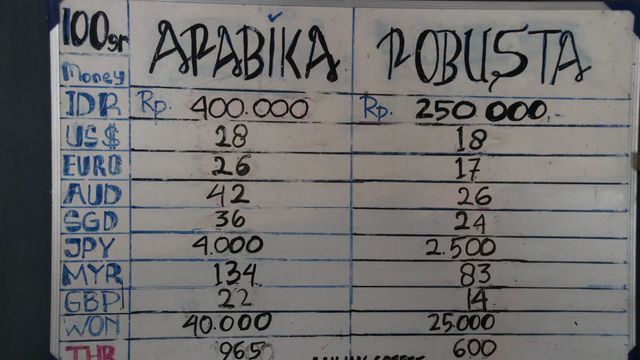 100gr ARABIKA ROBUSTA
Money
IDR Rp. 400.000 Rp. 250 000,-
US$ 28 18
EURO 26 17
AUD 42 26
SGD 36 24
JPY 4.000 2.500
MYR 134 83
GBP 22 14
WON 40.000 25.000
THB 965 600